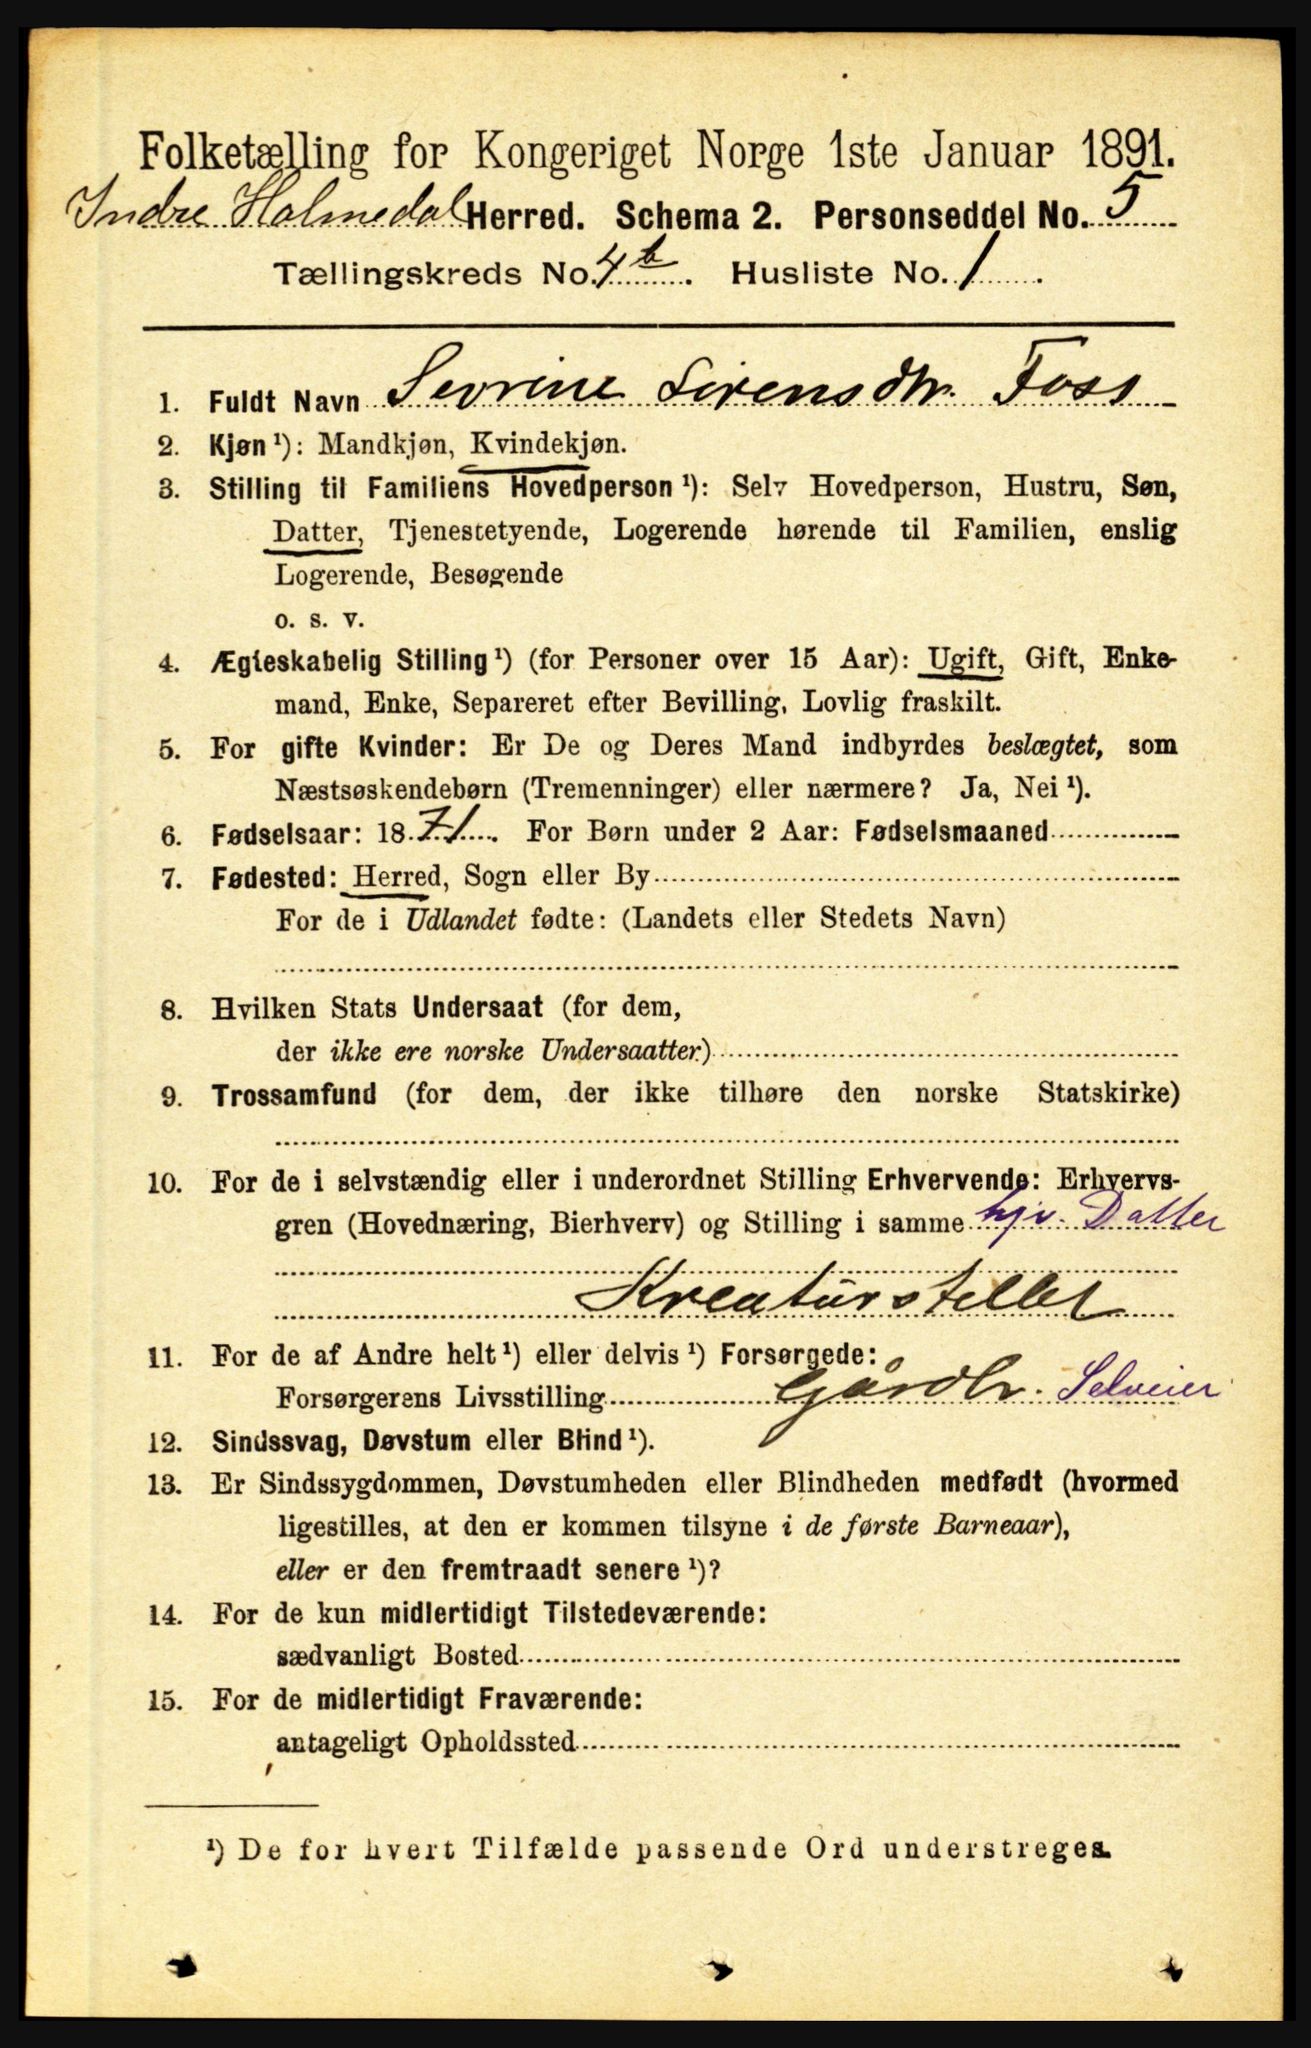 Folketælling for Kongeriget Norge 1ste Januar 1891.
Indre Holmedal Herred. Schema 2. Personseddel No. 5
Tællingskreds No. 4 b. Husliste No. 1.
1. Fuldt Navn Sevrine Sørensdtr. Foss
2. Kjøn¹): Mandkjøn, Kvindekjøn.
3. Stilling til Familiens Hovedperson¹): Selv Hovedperson, Hustru, Søn,
Datter, Tjenestetyende, Logerende hørende til Familien, enslig
Logerende, Besøgende
o. s. v.
4. Ægteskabelig Stilling¹) (for Personer over 15 Aar): Ugift, Gift, Enke-
mand, Enke, Separeret efter Bevilling, Lovlig fraskilt.
5. For gifte Kvinder: Er De og Deres Mand indbyrdes beslægtet, som
Næstsøskendebørn (Tremenninger) eller nærmere? Ja, Nei¹).
6. Fødselsaar: 1871. For Børn under 2 Aar: Fødselsmaaned
7. Fødested: Herred, Sogn eller By
For de i Udlandet fødte: (Landets eller Stedets Navn)
8. Hvilken Stats Undersaat (for dem,
der ikke ere norske Undersaatter)
9. Trossamfund (for dem, der ikke tilhøre den norske Statskirke)
10. For de i selvstændig eller i underordnet Stilling Erhvervende: Erhvervs-
gren (Hovednæring, Bierhverv) og Stilling i samme hjv. Datter
Kreaturstellet
11. For de af Andre helt¹) eller delvis¹) Forsørgede:
Forsørgerens Livsstilling Gårdbr. Selveier
12. Sindssvag, Døvstum eller Blind¹).
13. Er Sindssygdommen, Døvstumheden eller Blindheden medfødt (hvormed
ligestilles, at den er kommen tilsyne i de første Barneaar),
eller er den fremtraadt senere¹)?
14. For de kun midlertidigt Tilstedeværende:
sædvanligt Bosted
15. For de midlertidigt Fraværende:
antageligt Opholdssted
¹) De for hvert Tilfælde passende Ord understreges.